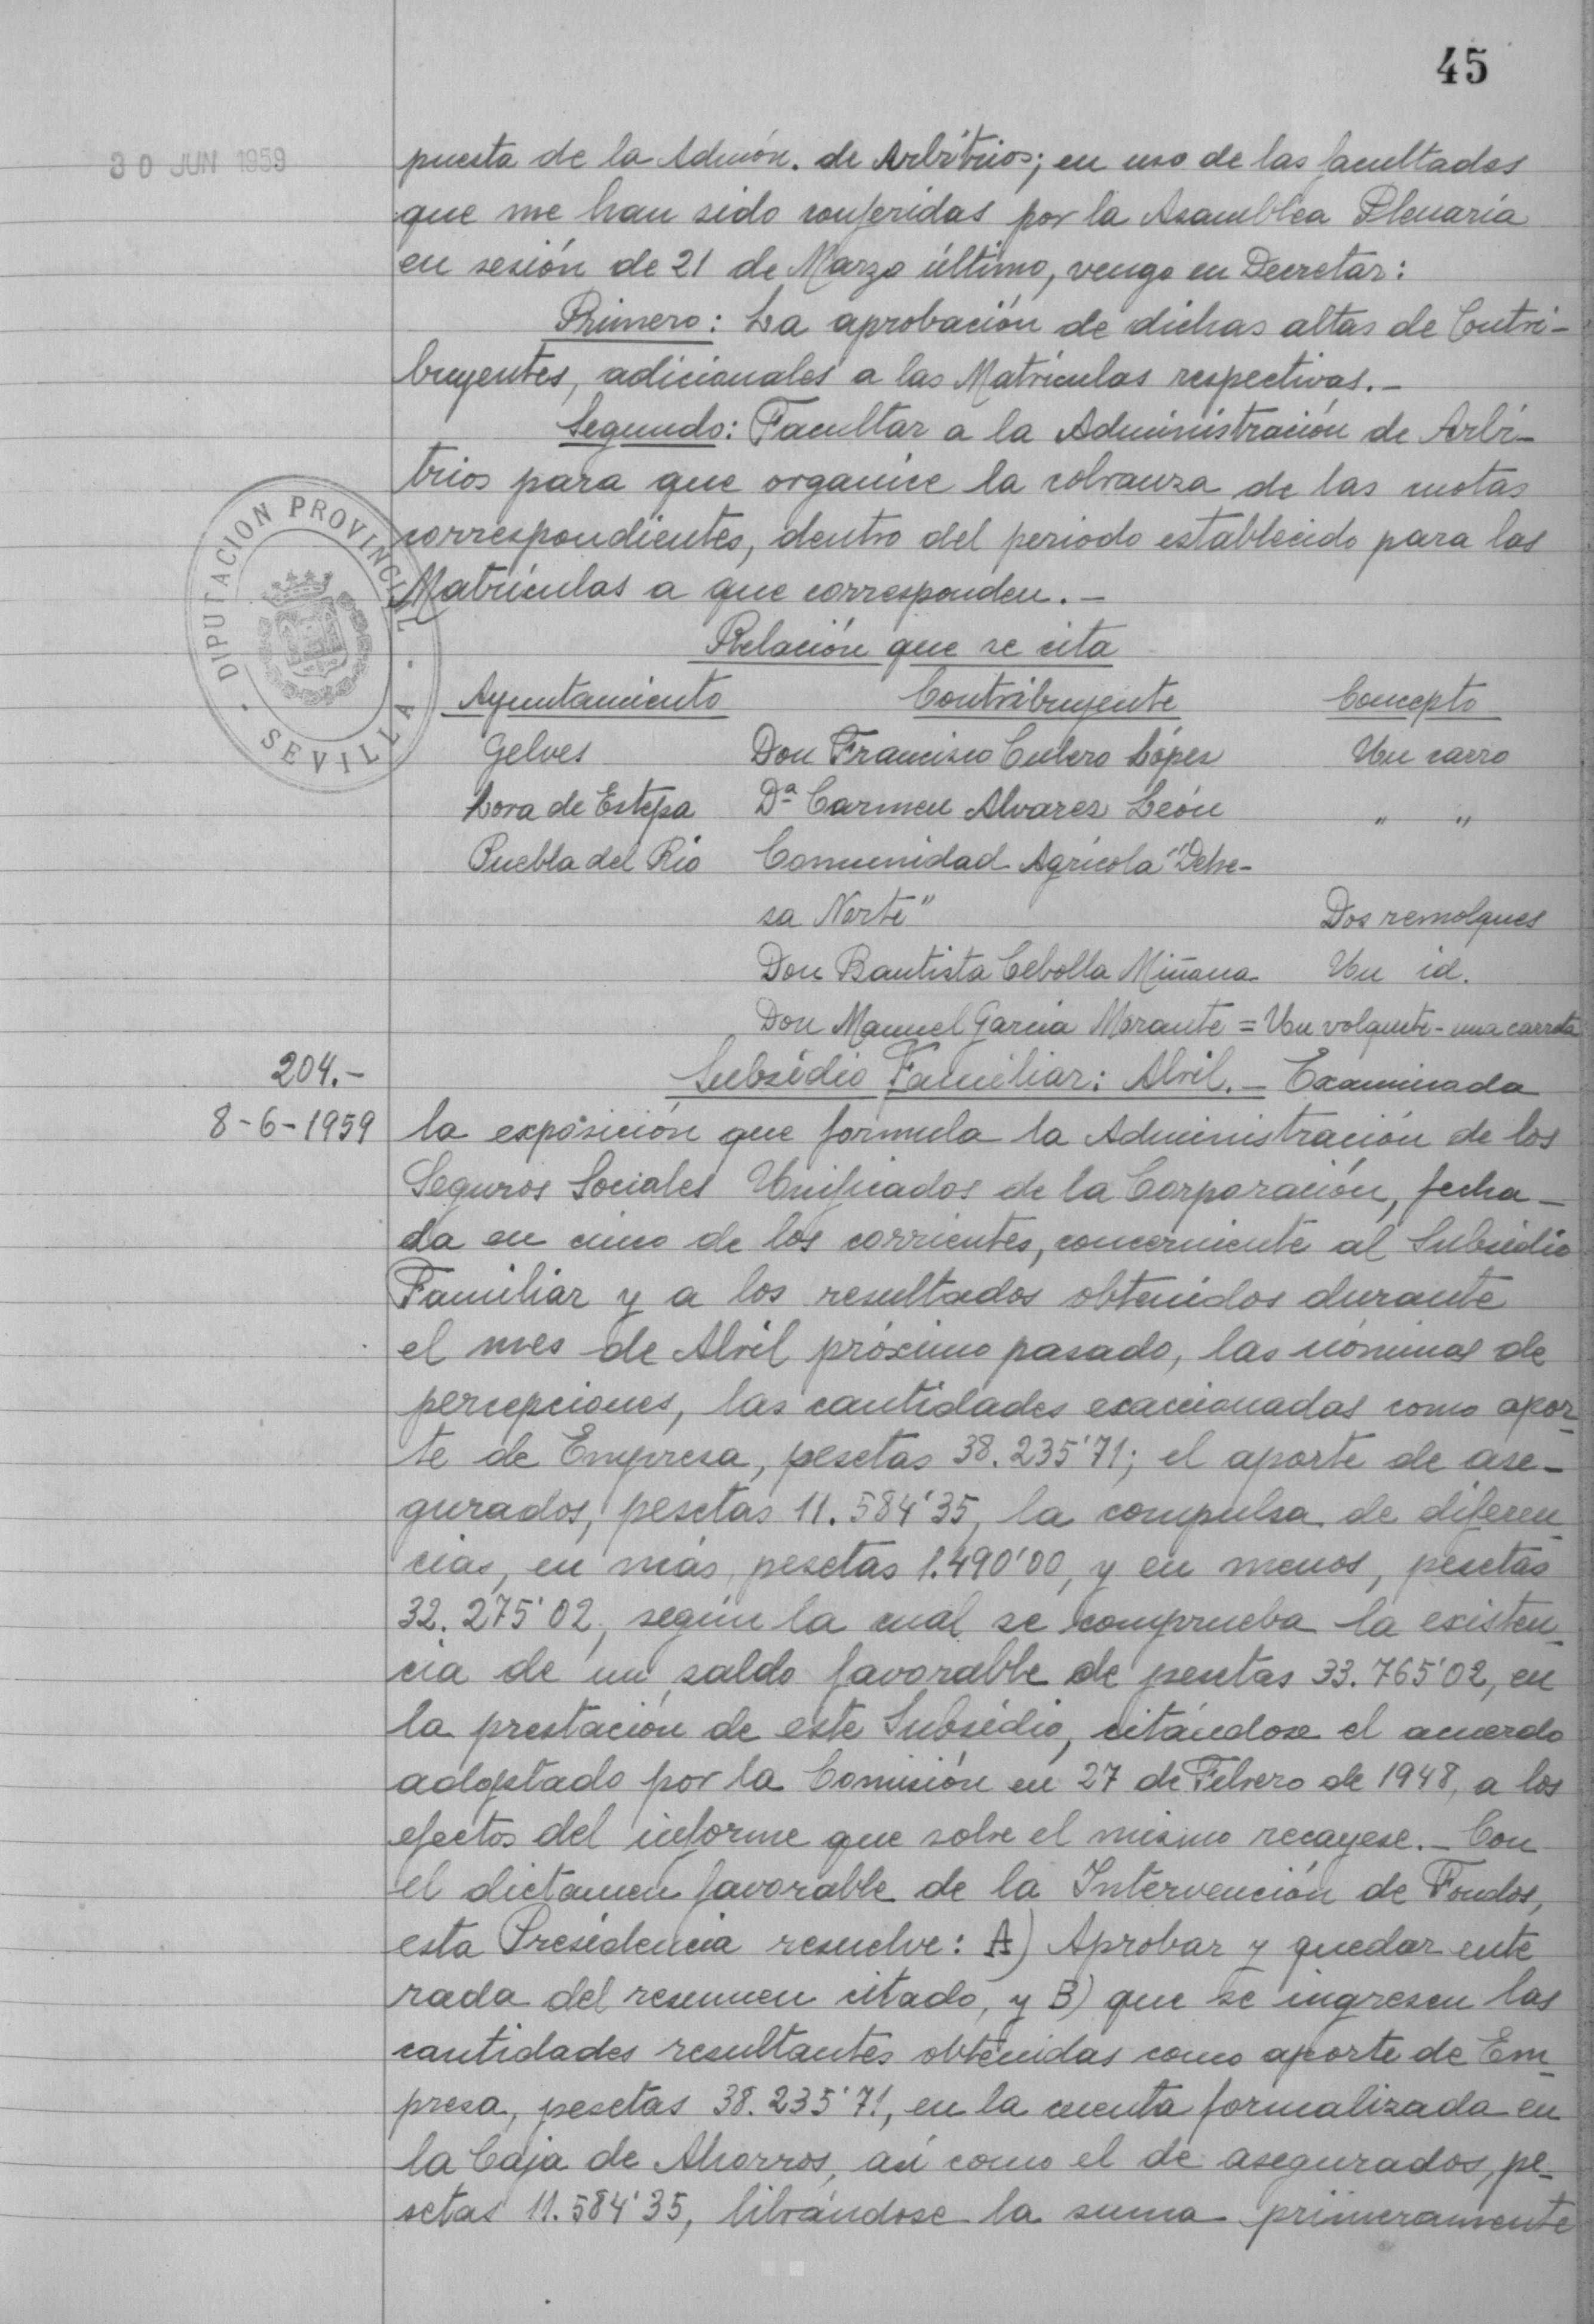 45
30 JUN 1959
puesta de la Admón. de Arbitrios; en uso de las facultades
que me han sido conferidas por la Asamblea Plenaria
en sesión de 21 de Marzo último, vengo en Decretar:
Primero: La aprobación de dichas altas de Contri-
buyentes, adicionales a las Matrículas respectivas.-
Segundo: Facultar a la Administración de Arbi-
trios para que organice la cobranza de las cuotas
correspondientes, dentro del periodo establecido para las
Matrículas a que corresponden.-
DIPUTACION PROVINCIAL - SEVILLA -
Relación que se cita
Ayuntamiento Contribuyente Concepto
Gelves Don Francisco Culero López Un carro
Lora de Estepa Dª Carmen Alvarez León " "
Puebla del Rio Comunidad Agrícola "Dehe-
sa Norte" Dos remolques
Don Bautista Cebolla Miñana Un id.
Don Manuel Garcia Morante = Un volquete - una carreta
204.-
8-6-1959
Subsidio Familiar: Abril.- Examinada
la exposición que formula la Administración de los
Seguros Sociales Unificados de la Corporación, fecha-
da en cinco de los corrientes, concerniente al Subsidio
Familiar y a los resultados obtenidos durante
el mes de Abril próximo pasado, las nóminas de
percepciones, las cantidades exaccionadas como apor-
te de Empresa, pesetas 38.235'71; el aporte de ase-
gurados, pesetas 11.584'35, la compulsa de diferen-
cias, en más, pesetas 1.490'00, y en menos, pesetas
32.275'02, según la cual se comprueba la existen-
cia de un saldo favorable de pesetas 33.765'02, en
la prestación de este Subsidio, citándose el acuerdo
adoptado por la Comisión en 27 de Febrero de 1948, a los
efectos del informe que sobre el mismo recayese.- Con
el dictamen favorable de la Intervención de Fondos,
esta Presidencia resuelve: A) Aprobar y quedar ente
rada del resumen citado, y B) que se ingresen las
cantidades resultantes obtenidas como aporte de Em-
presa, pesetas 38.235'71, en la cuenta formalizada en
la Caja de Ahorros, así como el de asegurados, pe-
setas 11.584'35, librándose la suma primeramente